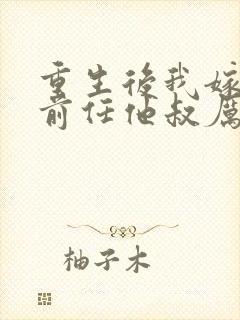 重生後我嫁
前任他叔厲
柚子木